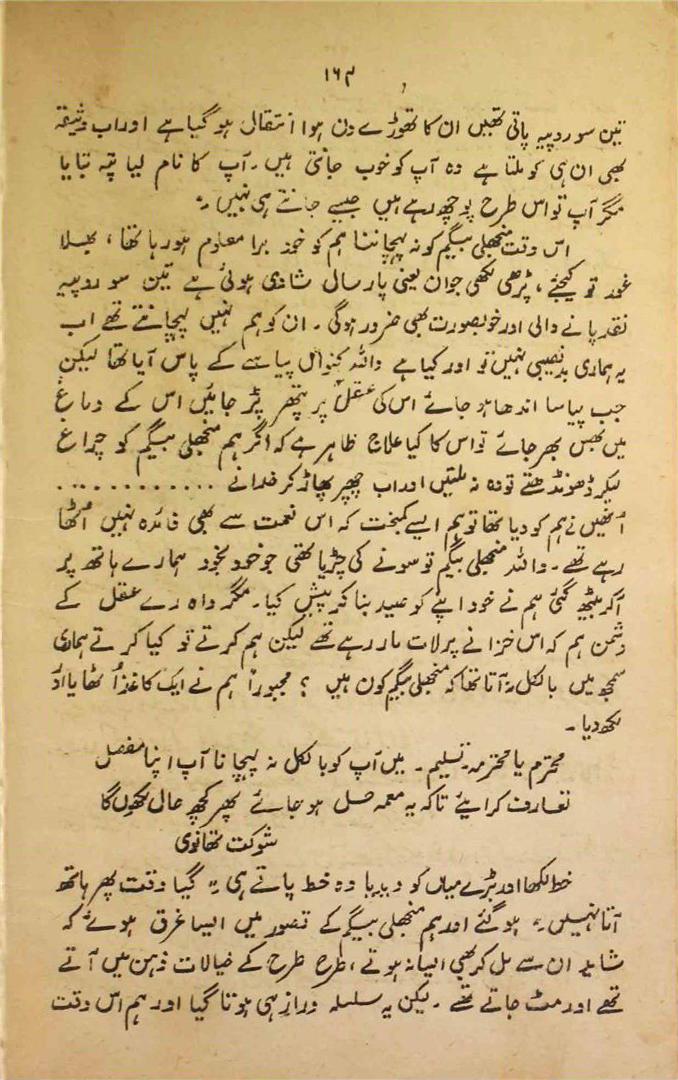 ۱۶۴
تین سو روپیہ پاتی تھیں ان کا تھوڑے دن ہوا انتقال ہو گیا ہے اور اب وثیقہ
بھی ان ہی کو ملتا ہے وہ آپ کو خوب جانتی ہیں ۔ آپ کا نام لیا پتہ بتایا
مگر آپ تو اس طرح پوچھ رہے ہیں جیسے جانتے ہی نہیں ۔"
اس وقت منجھلی بیگم کو نہ پہچاننا ہم کو خود برا معلوم ہو رہا تھا ، بھلا
غور تو کیجئے ، پڑھی لکھی جوان یعنی پار سال شادی ہوئی ہے تین سو روپیہ
نقد پانے والی اور خوبصورت بھی ضرور ہوگی ۔ ان کو ہم نہیں پہچانتے تھے اب
یہ ہماری بدنصیبی نہیں تو اور کیا ہے واللہ کنواں پیاسے کے پاس آیا تھا لیکن
جب پیاسا اندھا ہو جائے اس کی عقل پر پتھر پڑ جائیں اس کے دماغ
میں بھس بھر جائے تو اس کا کیا علاج ظاہر ہے کہ اگر ہم منجھلی بیگم کو چراغ
لیکر ڈھونڈھتے تو وہ نہ ملتیں اور اب چھپر پھاڑ کر خدا نے ............
انھیں نے ہم کو دیا تھا تو ہم ایسے کمبخت کہ اس نعمت سے بھی فائدہ نہیں اٹھا
رہے تھے ۔ واللہ منجھلی بیگم تو سونے کی چڑیا تھی جو خود بخود ہمارے ہاتھ پر
آکر بیٹھ گئی ہم نے خود اپنے کو صید بنا کر پیش کیا ۔ مگر واہ رے عقل کے
دشمن ہم کہ اس خزانے پر لات مار رہے تھے لیکن ہم کرتے تو کیا کرتے ہماری
سمجھ میں بالکل نہ آتا تھا کہ منجھلی بیگم کون ہیں ؟ مجبوراً ہم نے ایک کاغذ اٹھایا اور
لکھ دیا ۔
محترم یا محترمہ تسلیم ۔ میں آپ کو بالکل نہ پہچانا آپ اپنا مفصل
تعارف کرایئے تاکہ یہ معمہ حل ہو جائے پھر کچھ حال لکھوں گا
شوکت تھانوی
خط لکھا اور بڑے میاں کو دیدیا وہ خط پاتے ہی " گیا وقت پھر ہاتھ
آتا نہیں " ہو گئے اور ہم منجھلی بیگم کے تصور میں ایسا غرق ہوئے کہ
شاید ان سے مل کر بھی ایسا نہ ہوتے ، طرح طرح کے خیالات ذہن میں آتے
تھے اور مٹ جاتے تھے ۔ لیکن یہ سلسلہ دراز ہی ہوتا گیا اور ہم اس وقت